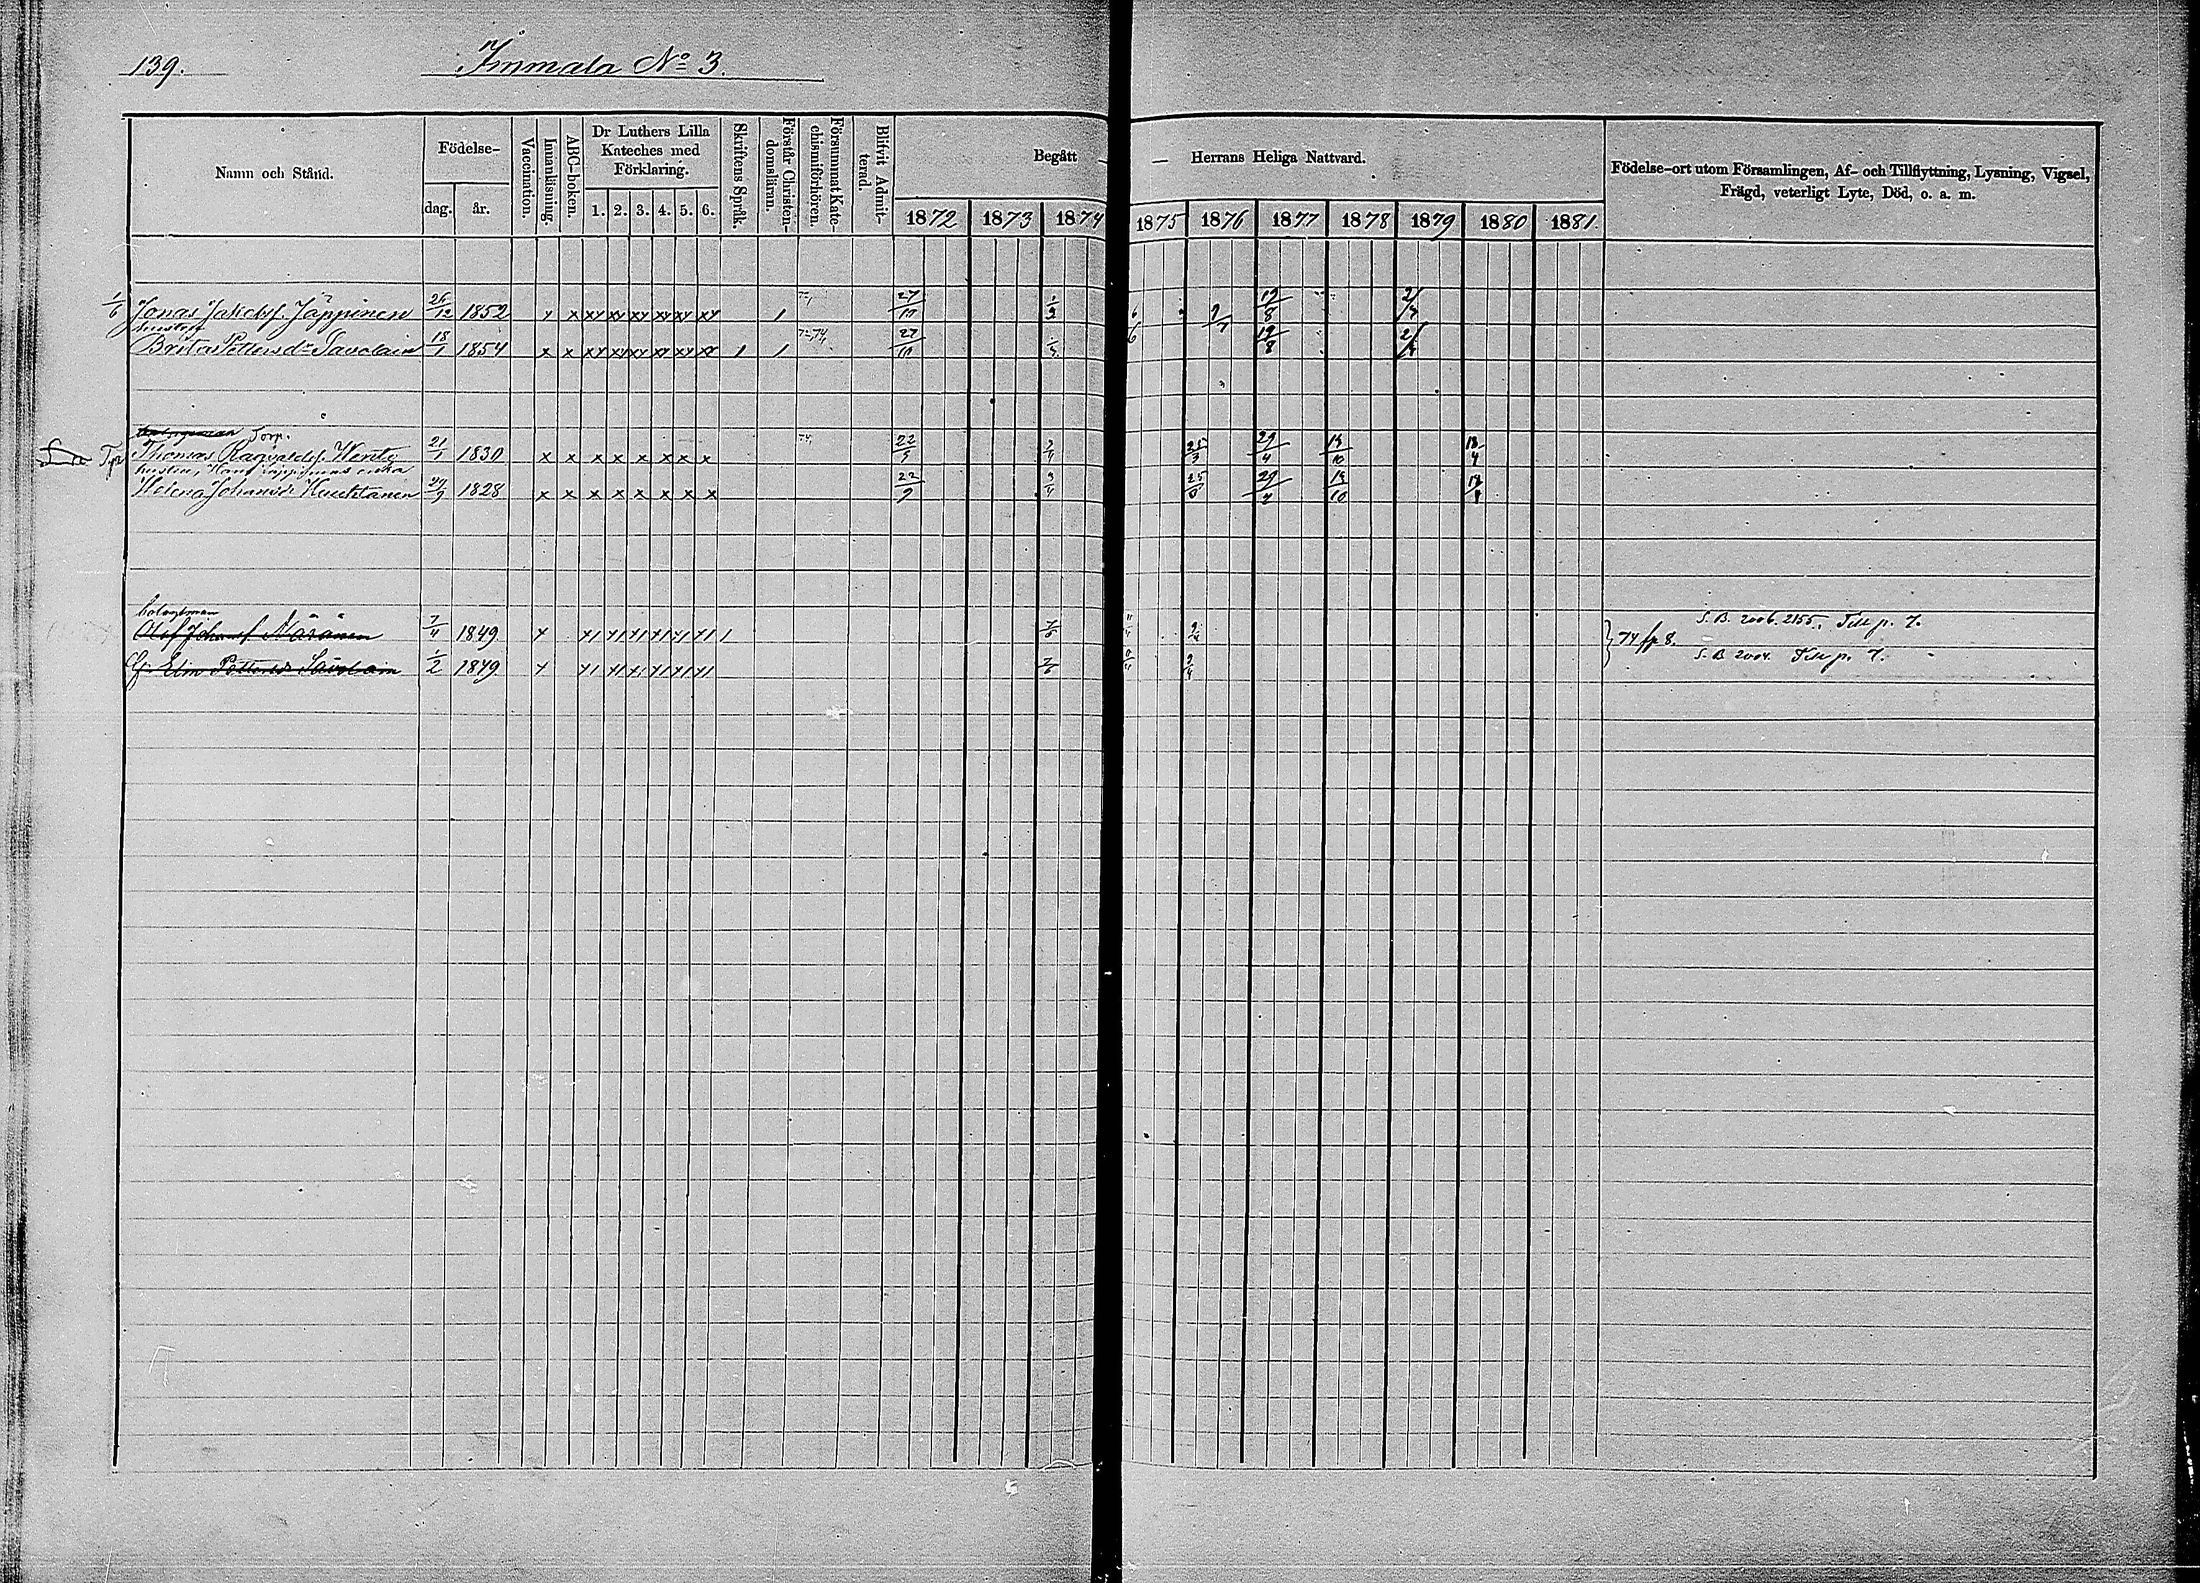 139. Immala No 3.
Namn och Stånd.
Födelse-
dag. år.
Vaccination.
Innanläsning.
ABC-boken.
Dr Luthers Lilla
Kateches med
Förklaring.
1. 2. 3. 4. 5. 6.
Skriftens Språk.
Förstår Christen-
domslärann.
Försummat Kate-
chismiförhören.
Blifvit Admit-
terad.
Begått — — Herrans Heliga Nattvard.
1872 1873 1874 1875 1876 1877 1878 1879 1880 1881
Födelse-ort utom Församlingen, Af- och Tillflyttning, Lysning, Vigsel,
Frägd, veterligt Lyte, Död, o. a. m.
1/6 Jonas Jakobss. Jäppinen 26/12 1852 x x xx xx xx xx xx xx 1 27/10 19/8
hustru
Brita Pettersdr Savolain 18/1 1854 x x xx xx xx xx xx xx 1 1 27/10 19/8
Torp.
Thomas Ragvaldss. 21/1 1830 x x x x x x x x 22/5 25/3 29/4 18/10 18/4
hustru, enka
Helena Johansdr 1828 x x x x x x x x 22/9 29/4 18/10
bolagsman
Olof Johanss. Näränen 7/4 1849 x x1 x1 x1 x1 x1 x1 1 7/6 9/4 } 74 fp 8. S. B. 2006. 2155. Till p. 7.
Elin Pettersdr Savolain 1/2 1849 x x1 x1 x1 x1 x1 x1 7/6 9/4 S. B. 2004. Till p. 7.